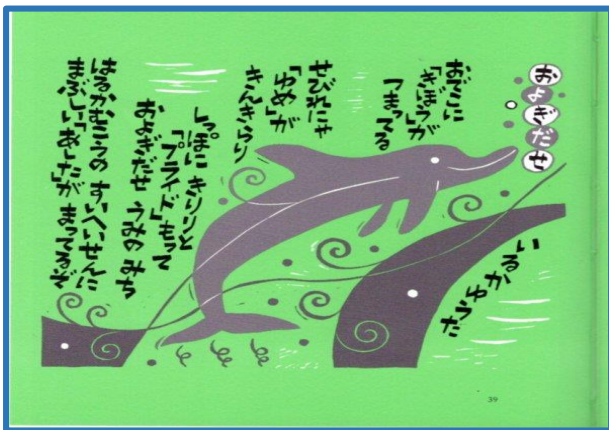 およぎだせ
いるかゆうた
おでこに
「きぼう」が
つまってる
せびれにゃ
「ゆめ」が
きんきらり
しっぽに きりりと
「プライド」もって
およぎだせ うみの みち
はるかむこうの すいへいせんに
まぶしい「あした」が まってるぞ
39